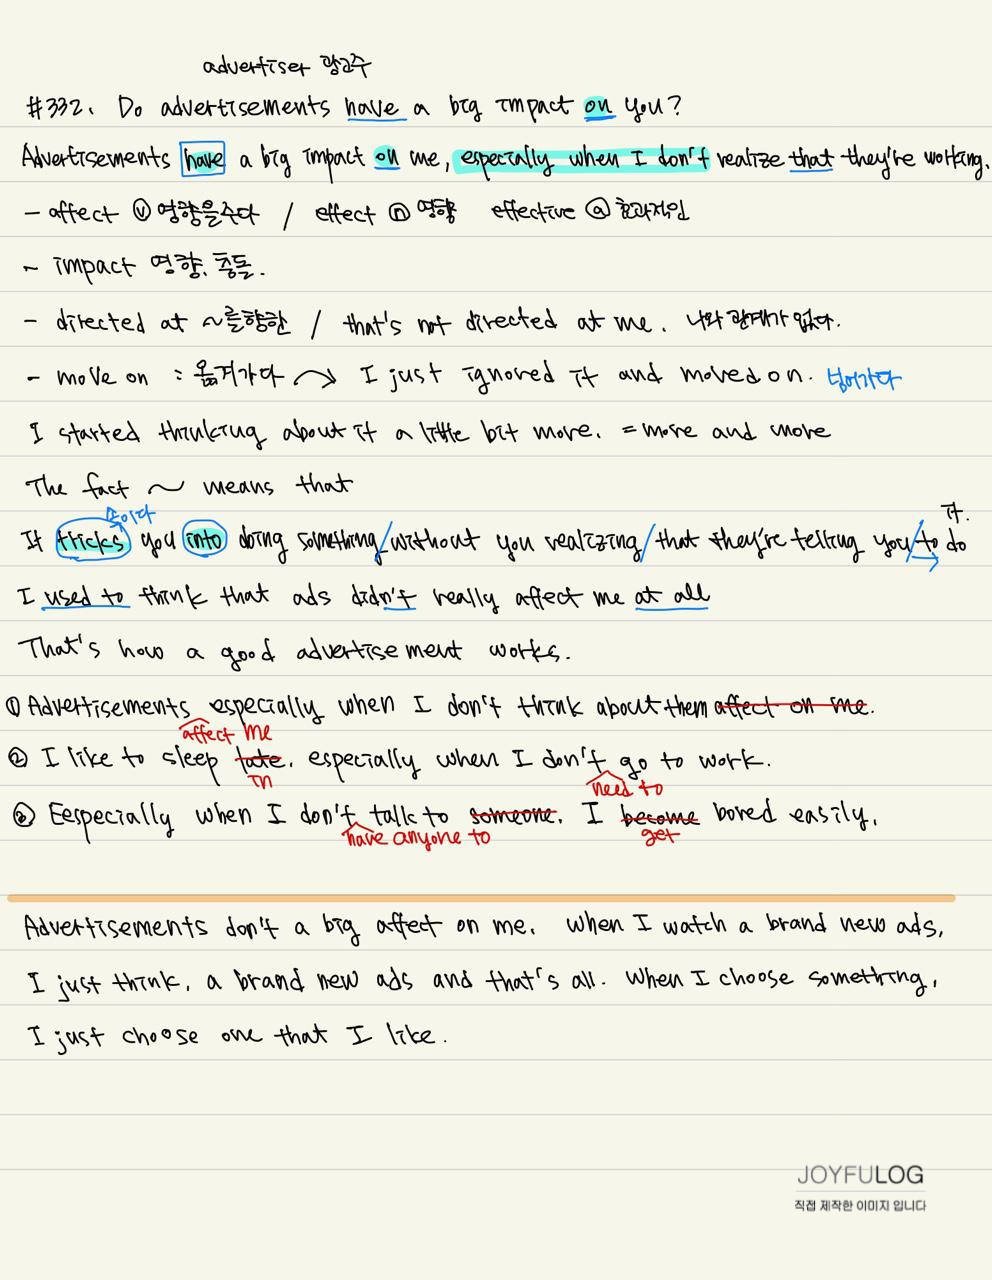 advertiser 광고주
#332. Do advertisements have a big impact on you?
Advertisements have a big impact on me, especially when I don't realize that they're working.
- affect ⓥ 영향을주다 / effect ⓝ 영향 effective ⓐ 효과적인
- impact 영향, 충돌.
- directed at ~를향한 / that's not directed at me. 나와 관계가 없다.
- move on : 옮겨가다 → I just ignored it and moved on. 넘어가다
I started thinking about it a little bit more. = more and more
The fact ~ means that
속이다
It tricks you into doing something/without you realizing/that they're telling you/to do it.
I used to think that ads didn't really affect me at all
That's how a good advertisement works.
① Advertisements especially when I don't think about them affect on me.
affect me
② I like to sleep late. especially when I don't go to work.
in need to
③ Eespecially when I don't talk to someone. I become bored easily.
have anyone to get
Advertisements don't a big affect on me. When I watch a brand new ads,
I just think, a brand new ads and that's all. When I choose something,
I just choose one that I like.
JOYFULOG
직접 제작한 이미지 입니다